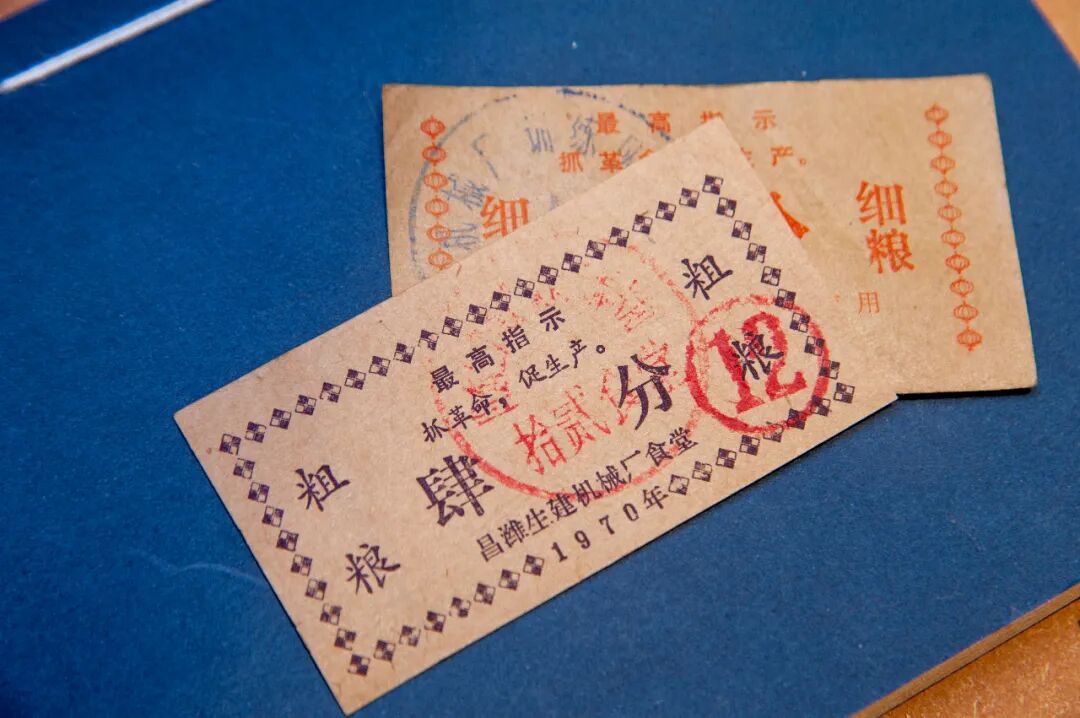 最高指示
抓革
生产。
细
细粮
用
最高指示
抓革命，促生产。
粗粮
肆分
粗粮
拾贰
12
昌潍生建机械厂食堂
1970年